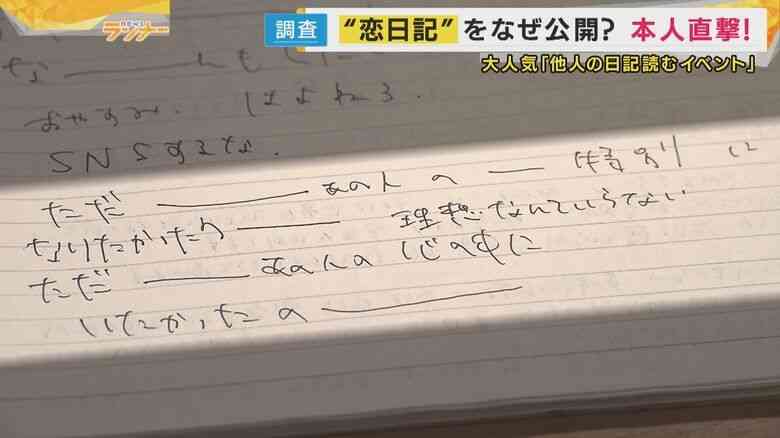 ランナー
調査 “恋日記”をなぜ公開? 本人直撃!
大人気「他人の日記読むイベント」
おやすみ. はよねろ
SNSするな.
ただ ―――― あの人の ―― 特別に
なりたかったの ―――― 理想なんていらない
ただ ―――― あの人の 心の中に
いたかったの ――――